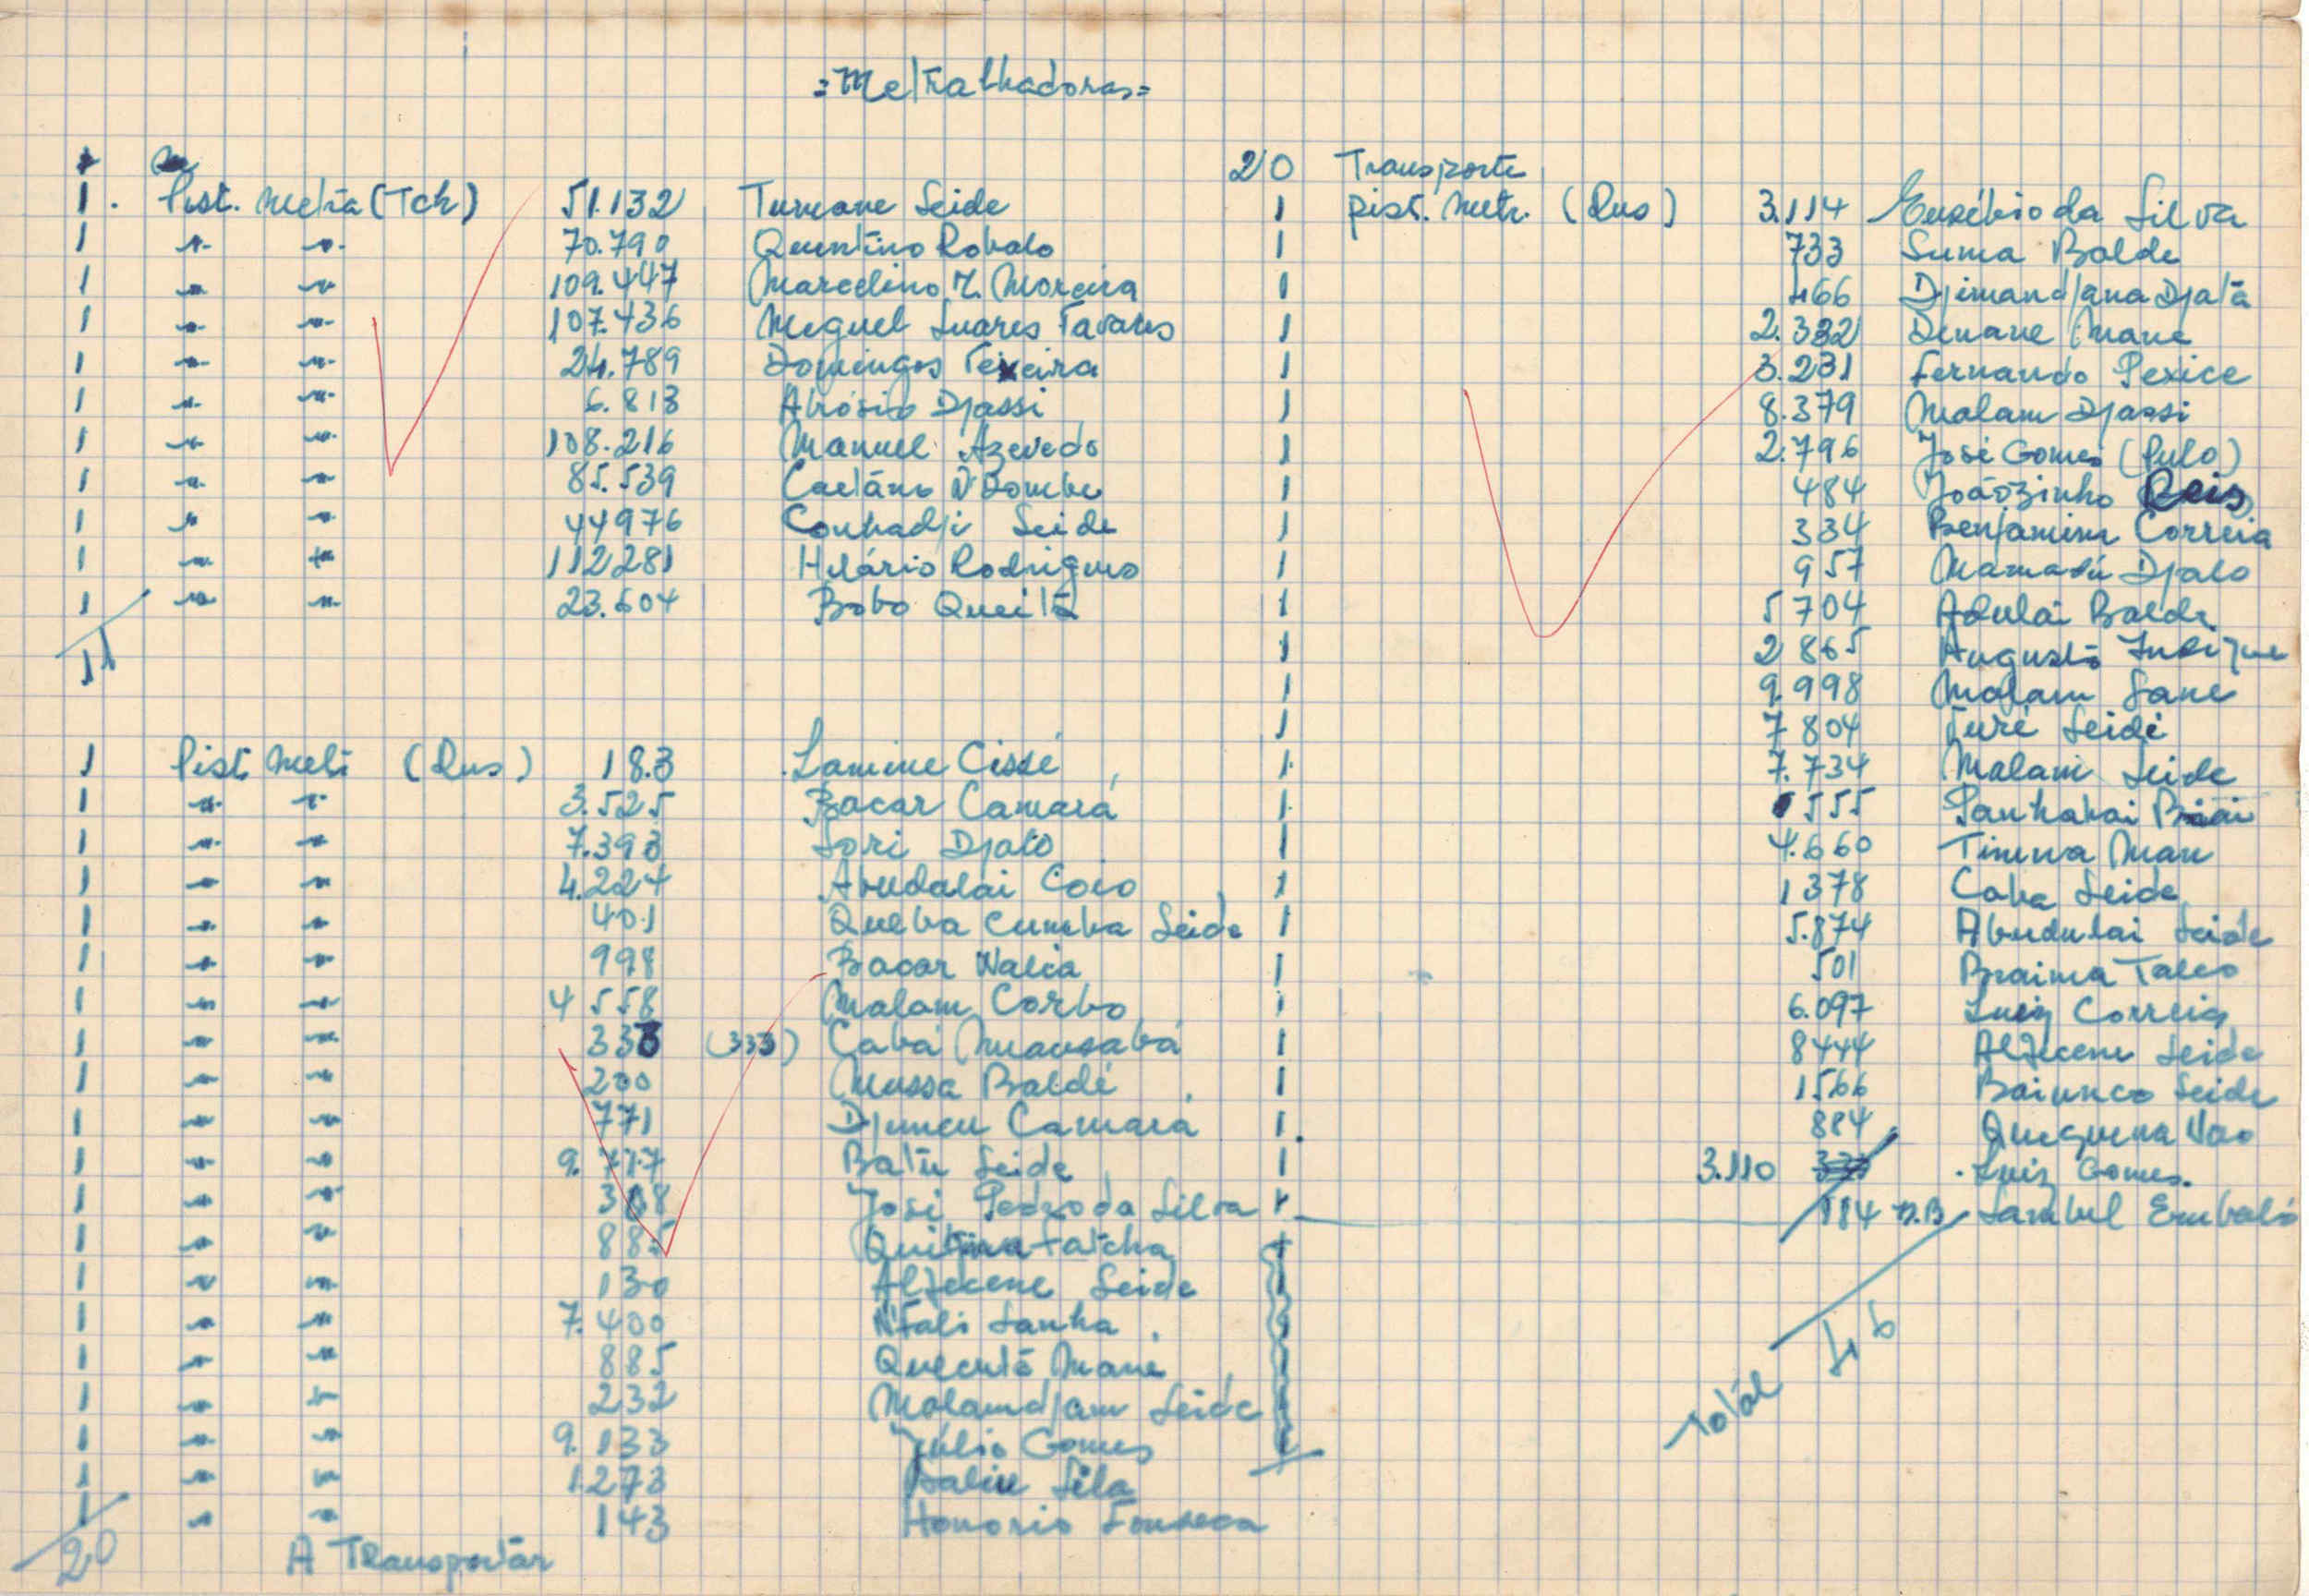 =Metralhadoras=
1. Pist. Metra (Tch) 51.132 Tumane Seide
1 " " 70.790 Quintino Robalo
1 " " 109.447 Marcelino T. Moreira
1 " " 107.436 Miguel Suares Tavares
1 " " 24.789 Domingos Texeira
1 " " 6.813 Abrósio Djassi
1 " " 108.216 Manuel Azevedo
1 " " 85.539 Caetano N'Dombe
1 " " 44976 Conhadji Seide
1 " " 112281 Hilário Rodrigues
1 " " 23.604 Bobo Queita
11
1 Pist Metr (Rus) 183 Lamine Cissé
1 " " 3.525 Bacar Camará
1 " " 7.393 Sori Djalo
1 " " 4.224 Abudalai Coio
1 " " 401 Queba Cumba Seide
1 " " 998 Bacar Walia
1 " " 4 558 Malam Corbo
1 " " 333 (333) Cabá Mansabá
1 " " 200 Mussa Baldé
1 " " 771 Djuncu Camará
1 " " 9. 717 Batu Seide
1 " " 308 José Pedro da Silva
1 " " 885 Fatcha
1 " " 130 Alfucene Seide
1 " " 7.400 N'Fali Sanha
1 " " 885 Quecuta Mané
1 " " 232 Malamdjam Seide
1 " " 9.133 Júlio Gomes
1 " " 1273 Baliu Sila
1 " " 143 Honorio Fonseca
20 A Transportár
20 Transporte
1 pist. Metr. (Rus) 3.114 Eusébio da Silva
1 733 Suma Balde
1 466 Djimandjana Djatá
1 2.332 Denane Mane
1 3.231 Fernando Pexice
1 8.379 Malam Djassi
1 2.796 José Gomes (Pulo)
1 484 Joãozinho Reis
1 334 Benjamim Correia
1 957 Mamadú Djalo
1 5704 Adulai Balde
1 2865 Augusto
1 9.998 Malam Sane
1 7804 Turé Seidé
1 7.734 Malam Seide
1 555 Sanhabai
1 4.660 Timna Mane
1 1378 Caba Seide
1 5.874 Abudulai Seide
1 501 Braima Tales
1 6.097 Luiz Correia
1 8444 Alfucene Seide
1 1566 Baiunco Seide
1. 884 Queguena Nao
1 3.110 Luiz Gomes.
1 114 n.B Sambel Embaló
Totál 46